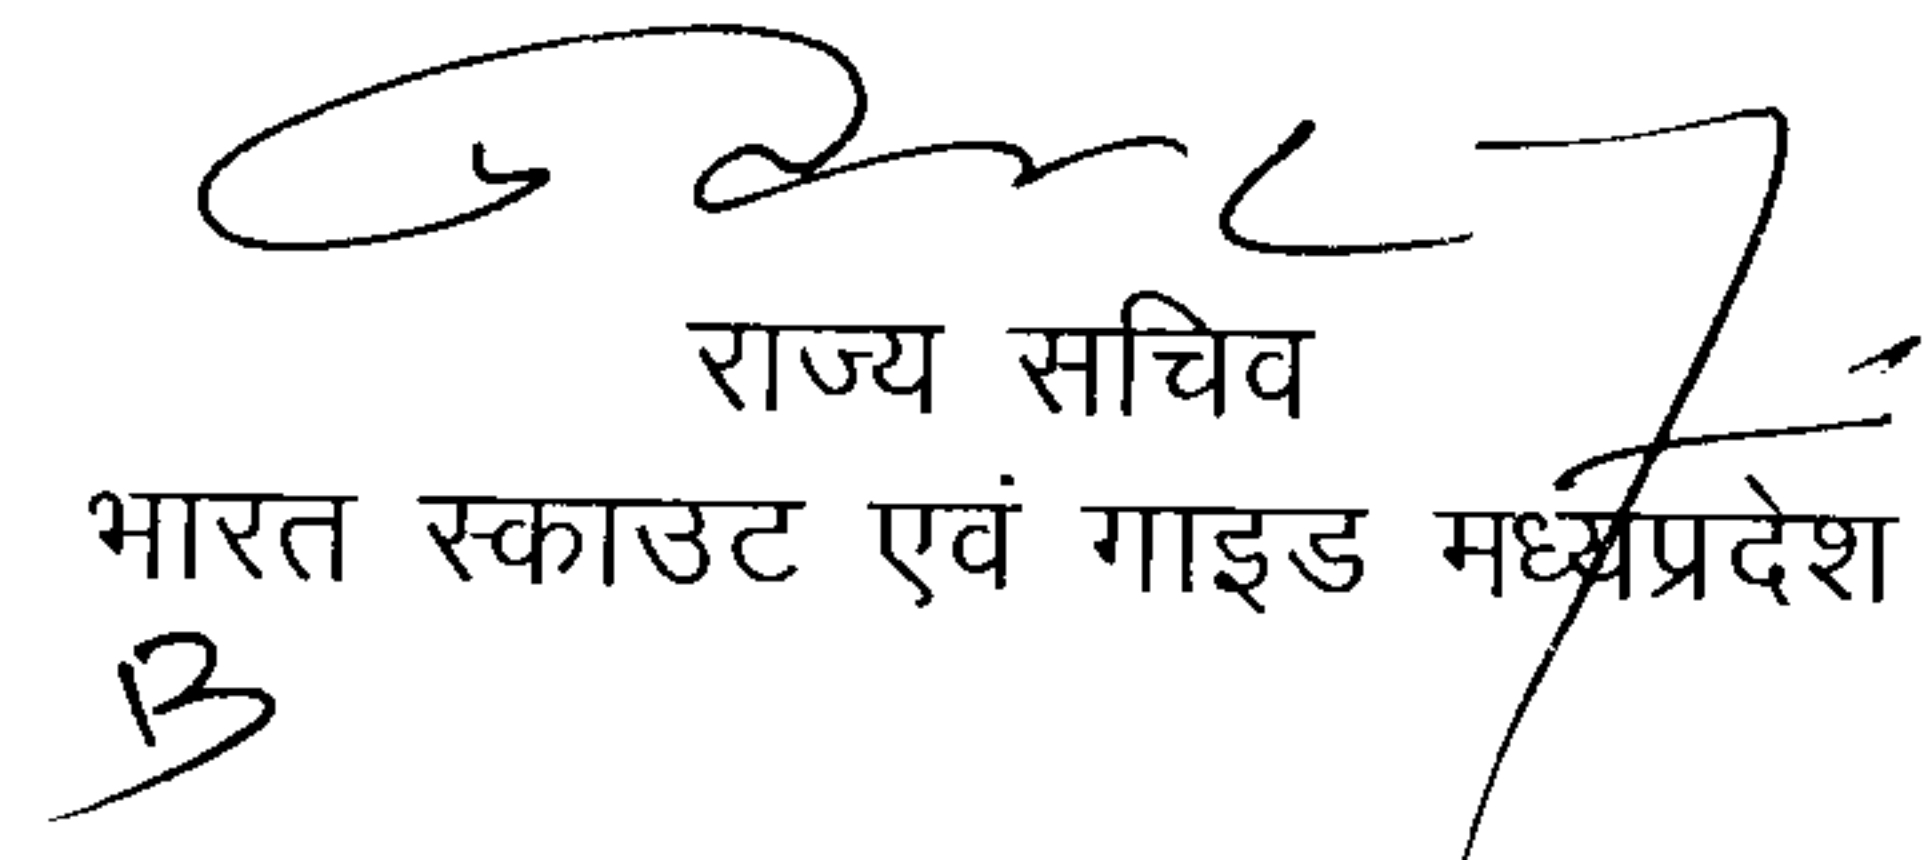 राज्य सचिव
भारत स्काउट एवं गाइड मध्यप्रदेश
B